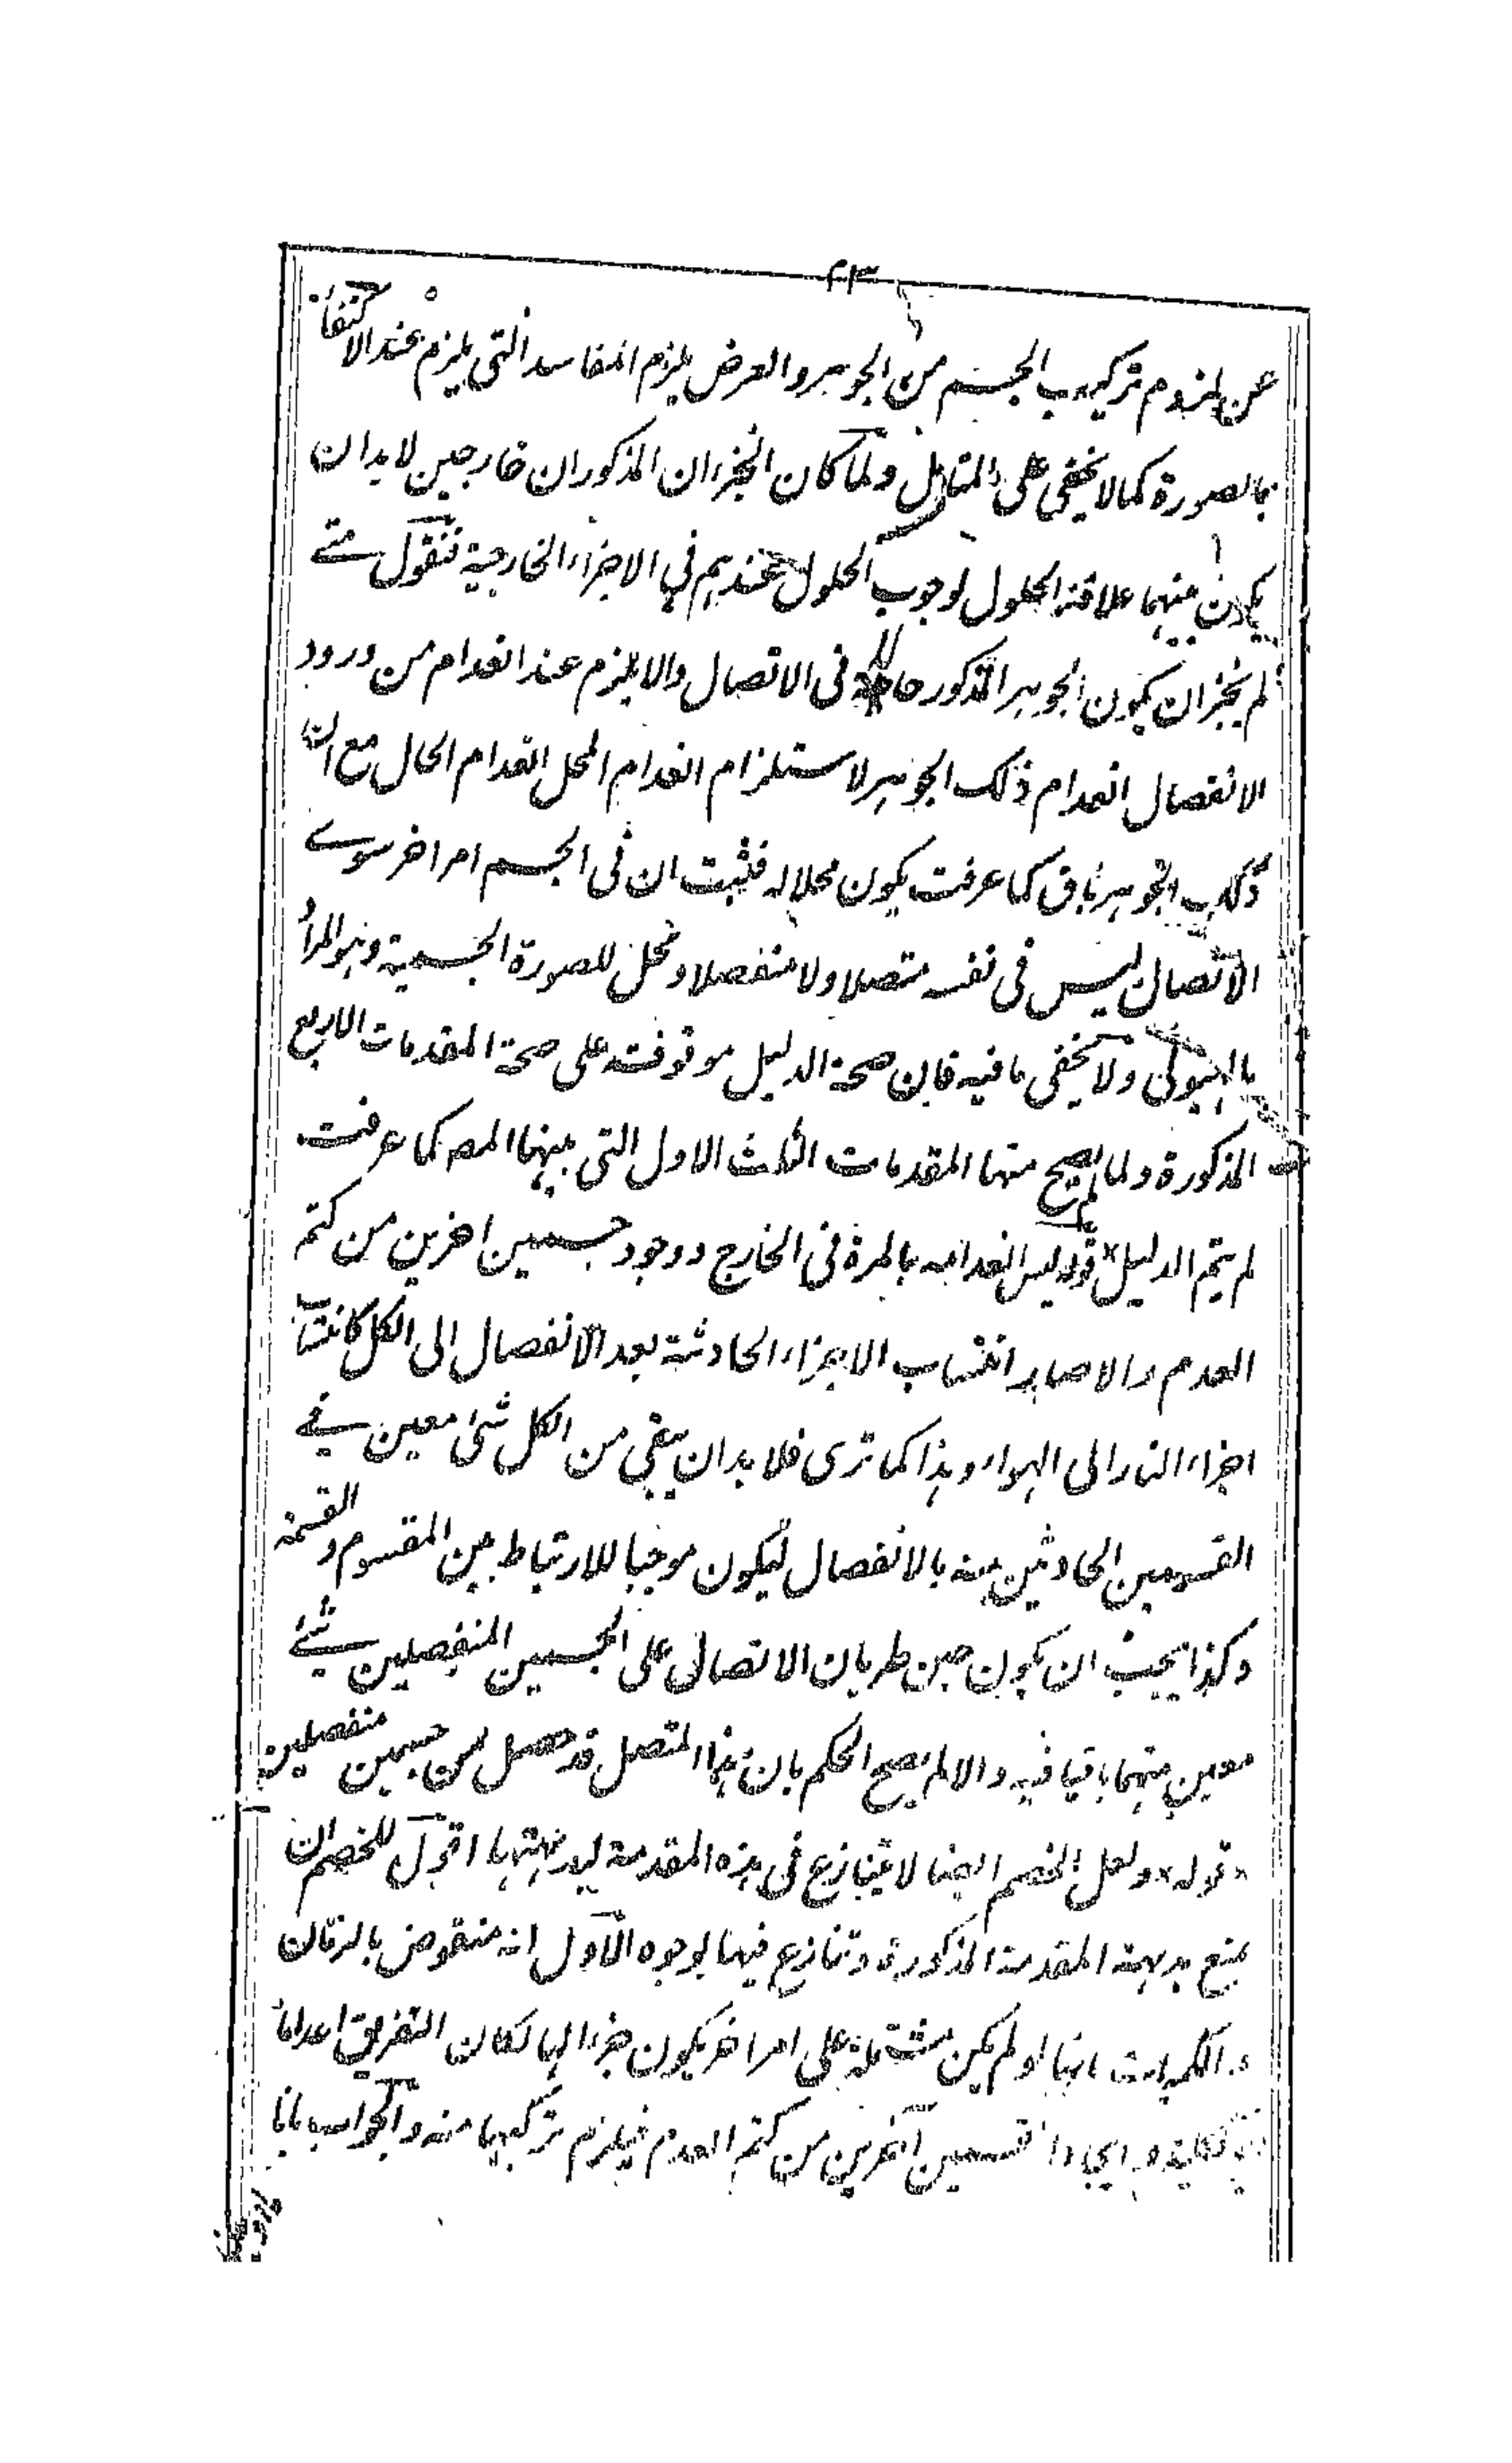 ٢٣
عن لزوم تركيب الجسم من الجوهر والعرض يلزم المفاسد التى يلزم عند الاكتفاء
بالصورة كما لا يخفى على المتامل ولما كان الجزءان المذكوران خارجين لابد ان
يكون بينهما علاقة الحلول لوجوب الحلول عندهم فى الاجزاء الخارجية فنقول متے
لم يجز ان يكون الجوهر المذكور حالا فى الاتصال والا يلزم عند انعدام من ورود
الانفصال انعدام ذلك الجوهر لاستلزام انعدام المحل انعدام الحال مع ان
ذلك الجوهر باق كما عرفت يكون محلا له فثبت ان فى الجسم امرا اخر سوے
الاتصال ليس فى نفسه متصلا ولا منفصلا ومحل للصورة الجسمية وهو المراد
بالهيولى ولا يخفى ما فيه فان صحة الدليل موقوفة على صحة المقدمات الاربع
المذكورة ولما لم يصح منها المقدمات الثلث الاول التى بينها المصـ كما عرفت
لم يتم الدليل قوله ليس انعدامه بالمرة فى الخارج ووجود جسمين اخرين من كتم
العدم والا صار انتساب الاجزاء الحادثة بعد الانفصال الى الكل كانتساب
اجزاء النار الى الهواء وهذا كما ترى فلا بد ان يبقى من الكل شئ معين فے
القسمين الحادثين منه بالانفصال ليكون موجبا للارتباط بين المقسوم والقسمة
وكذا يجب ان يكون حين طريان الاتصال على الجسمين المنفصلين شئے
معين منهما باقيا فيه والا لم يصح الحكم بان هذا المتصل قد حصل من جسمين منفصلين
قوله ولعل الخصم ايضا لا ينازع فى هذه المقدمة لبديهتها اقول للخصم ان
يمنع بديهة المقدمة المذكورة وتنازع فيها لوجوه الاول انه منقوض بالزمان
و الكميات انها لو لم يكن مشتملة على امر اخر يكون جزءا لها لكان التفريق اعداما
بالكلية و ايجادا قسمين آخرين من كتم العدم فيلزم تركبها منه والجواب بانا